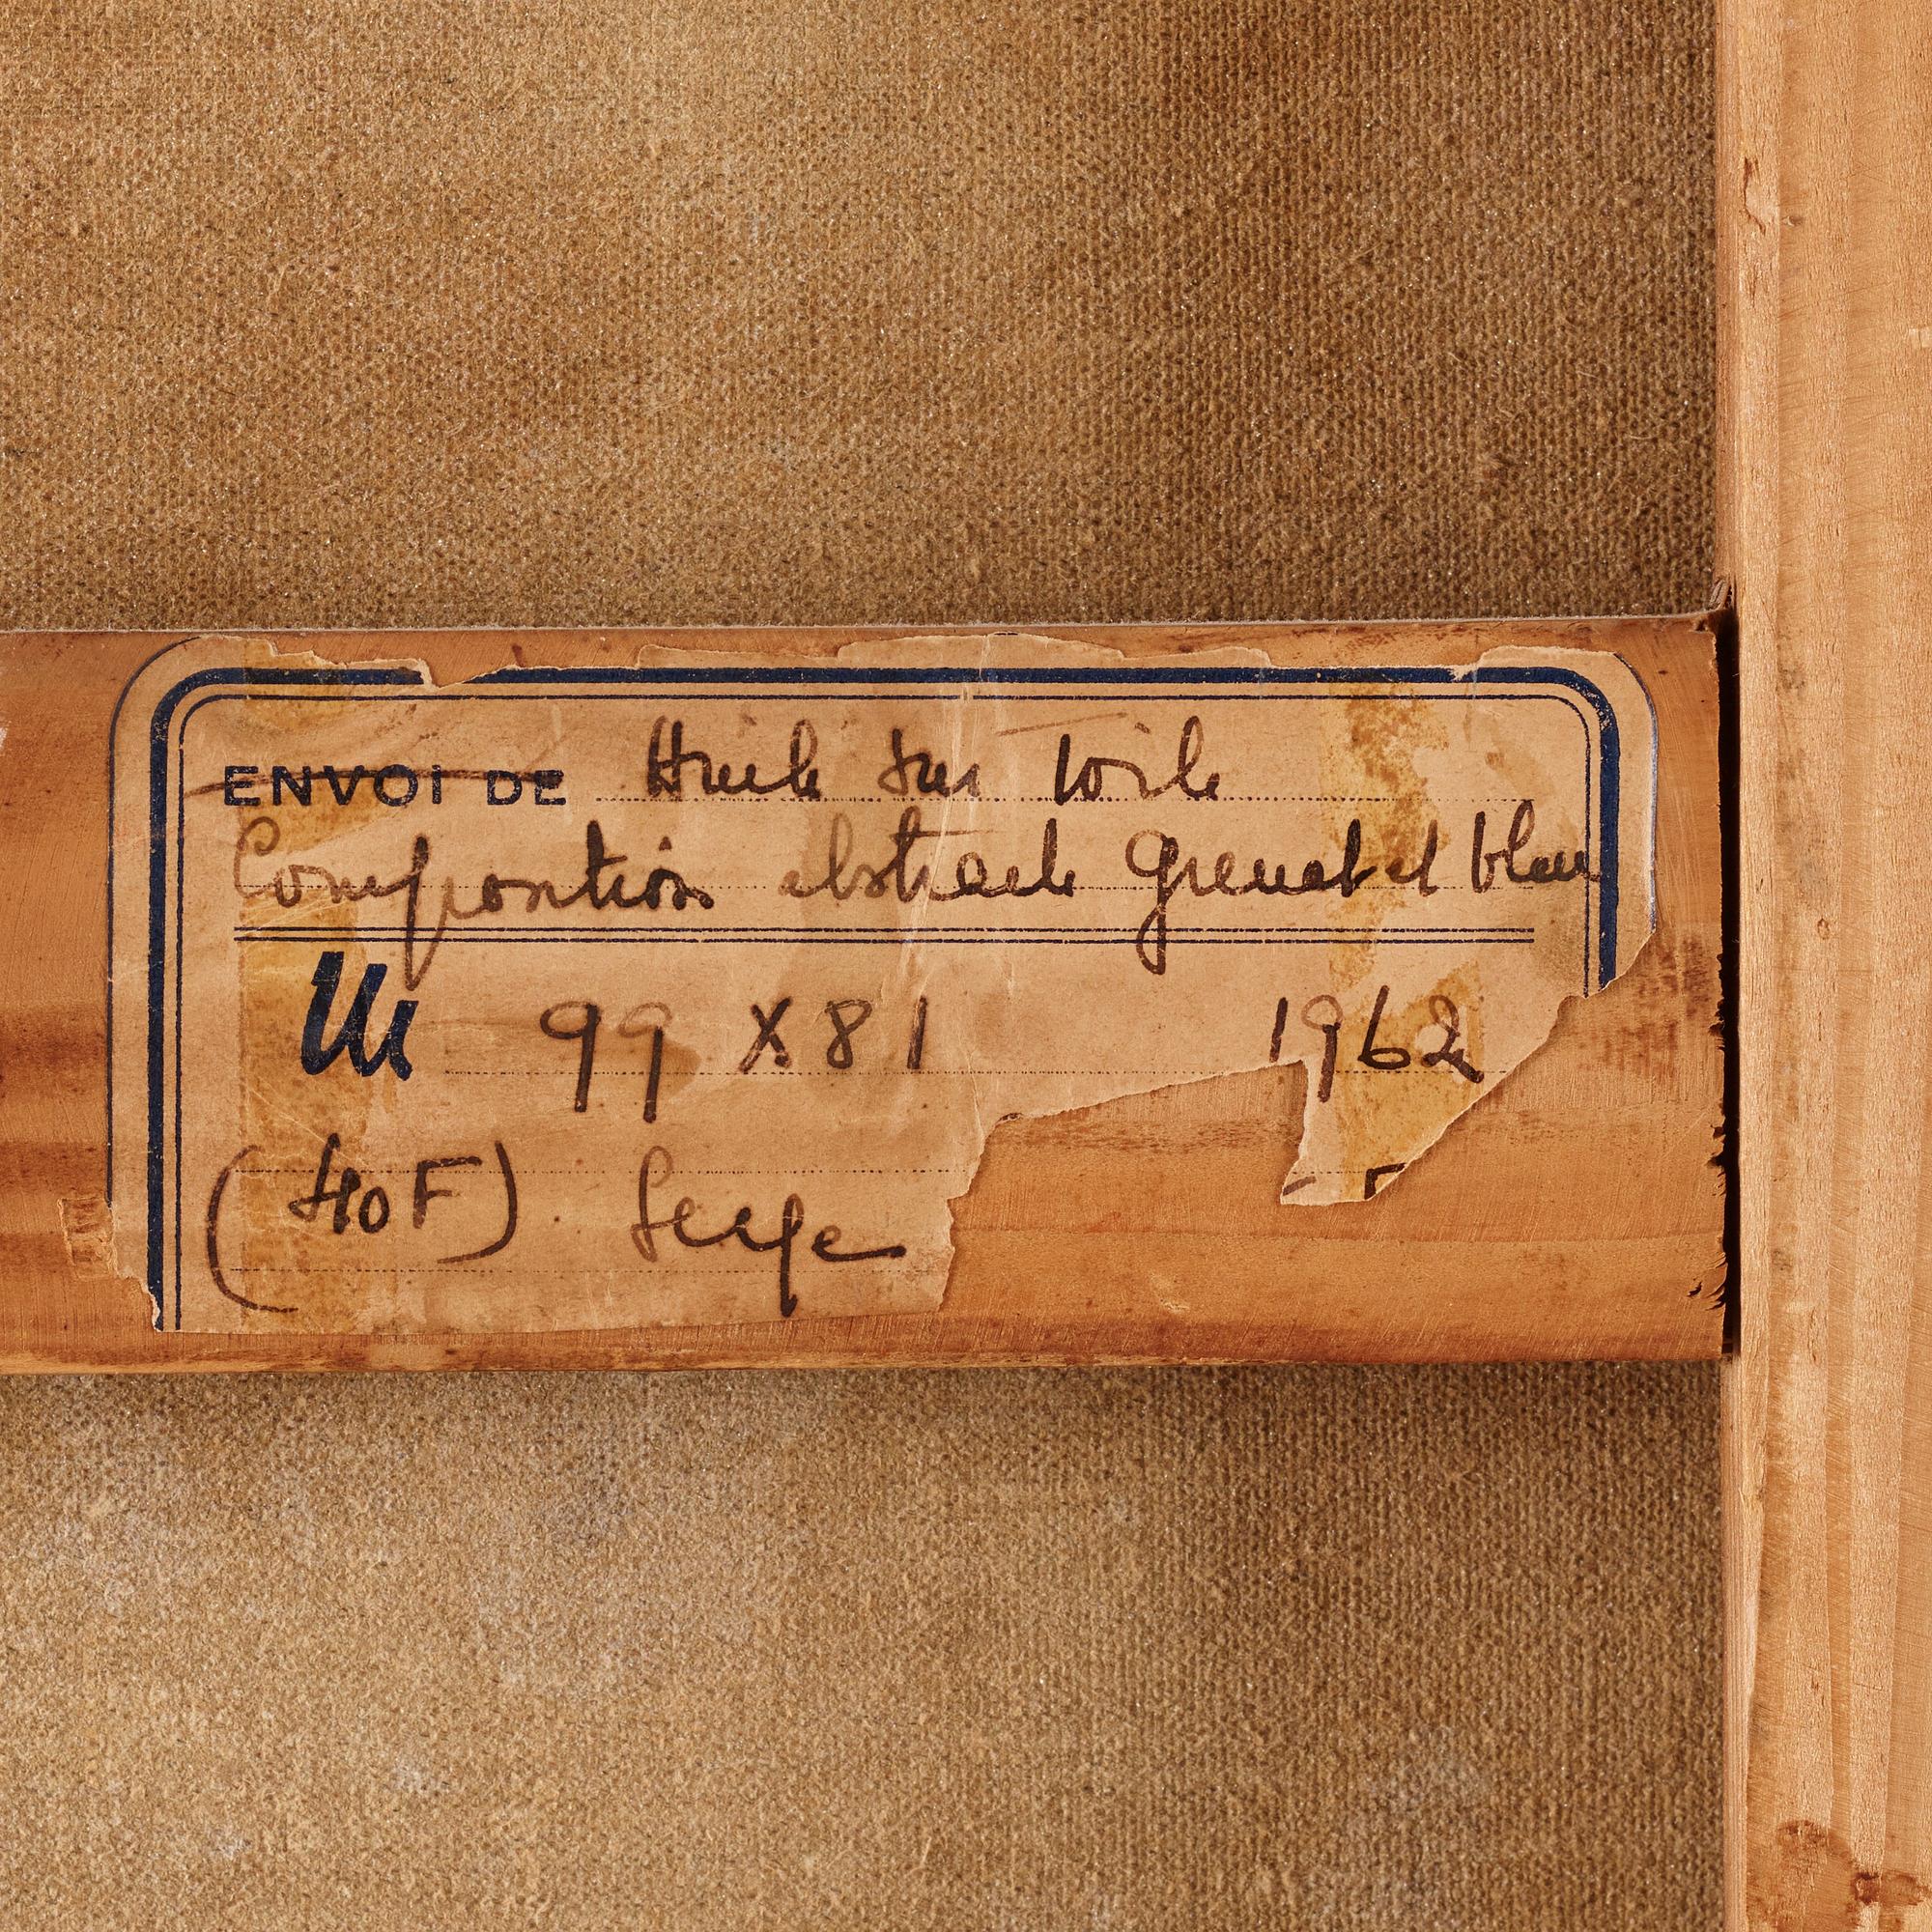 ENVOI DE Huile sur toile
Composition abstraite grenat et bleu
M 99 X 81 1962
(40F). Serge